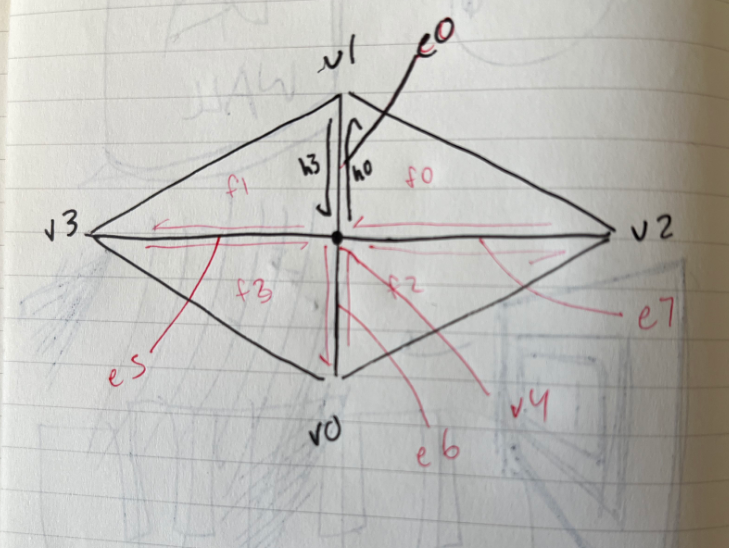 e0
v1
h3
h0
f1
f0
v3
v2
f3
f2
e7
e5
v4
v0
e6